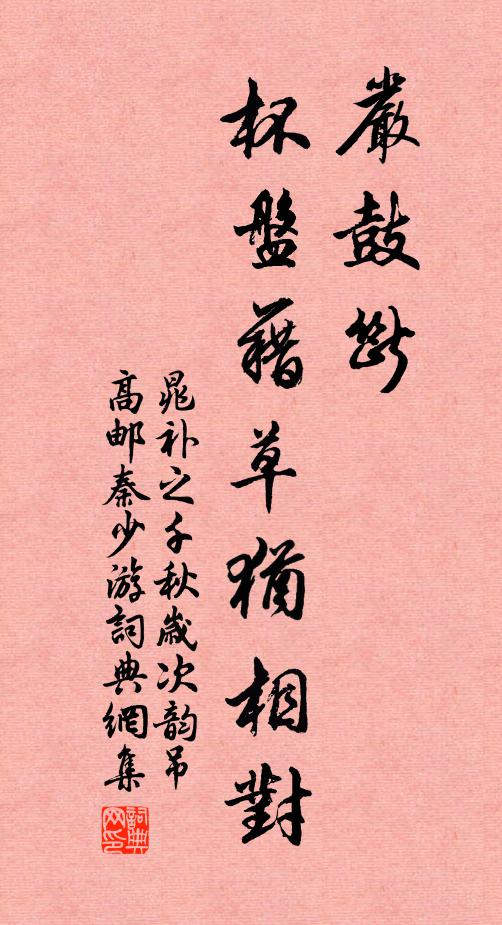 嚴鼓斷
杯盤藉草猶相對
晁补之千秋歲次韵吊
高邮秦少游詞典網集
詞典网印